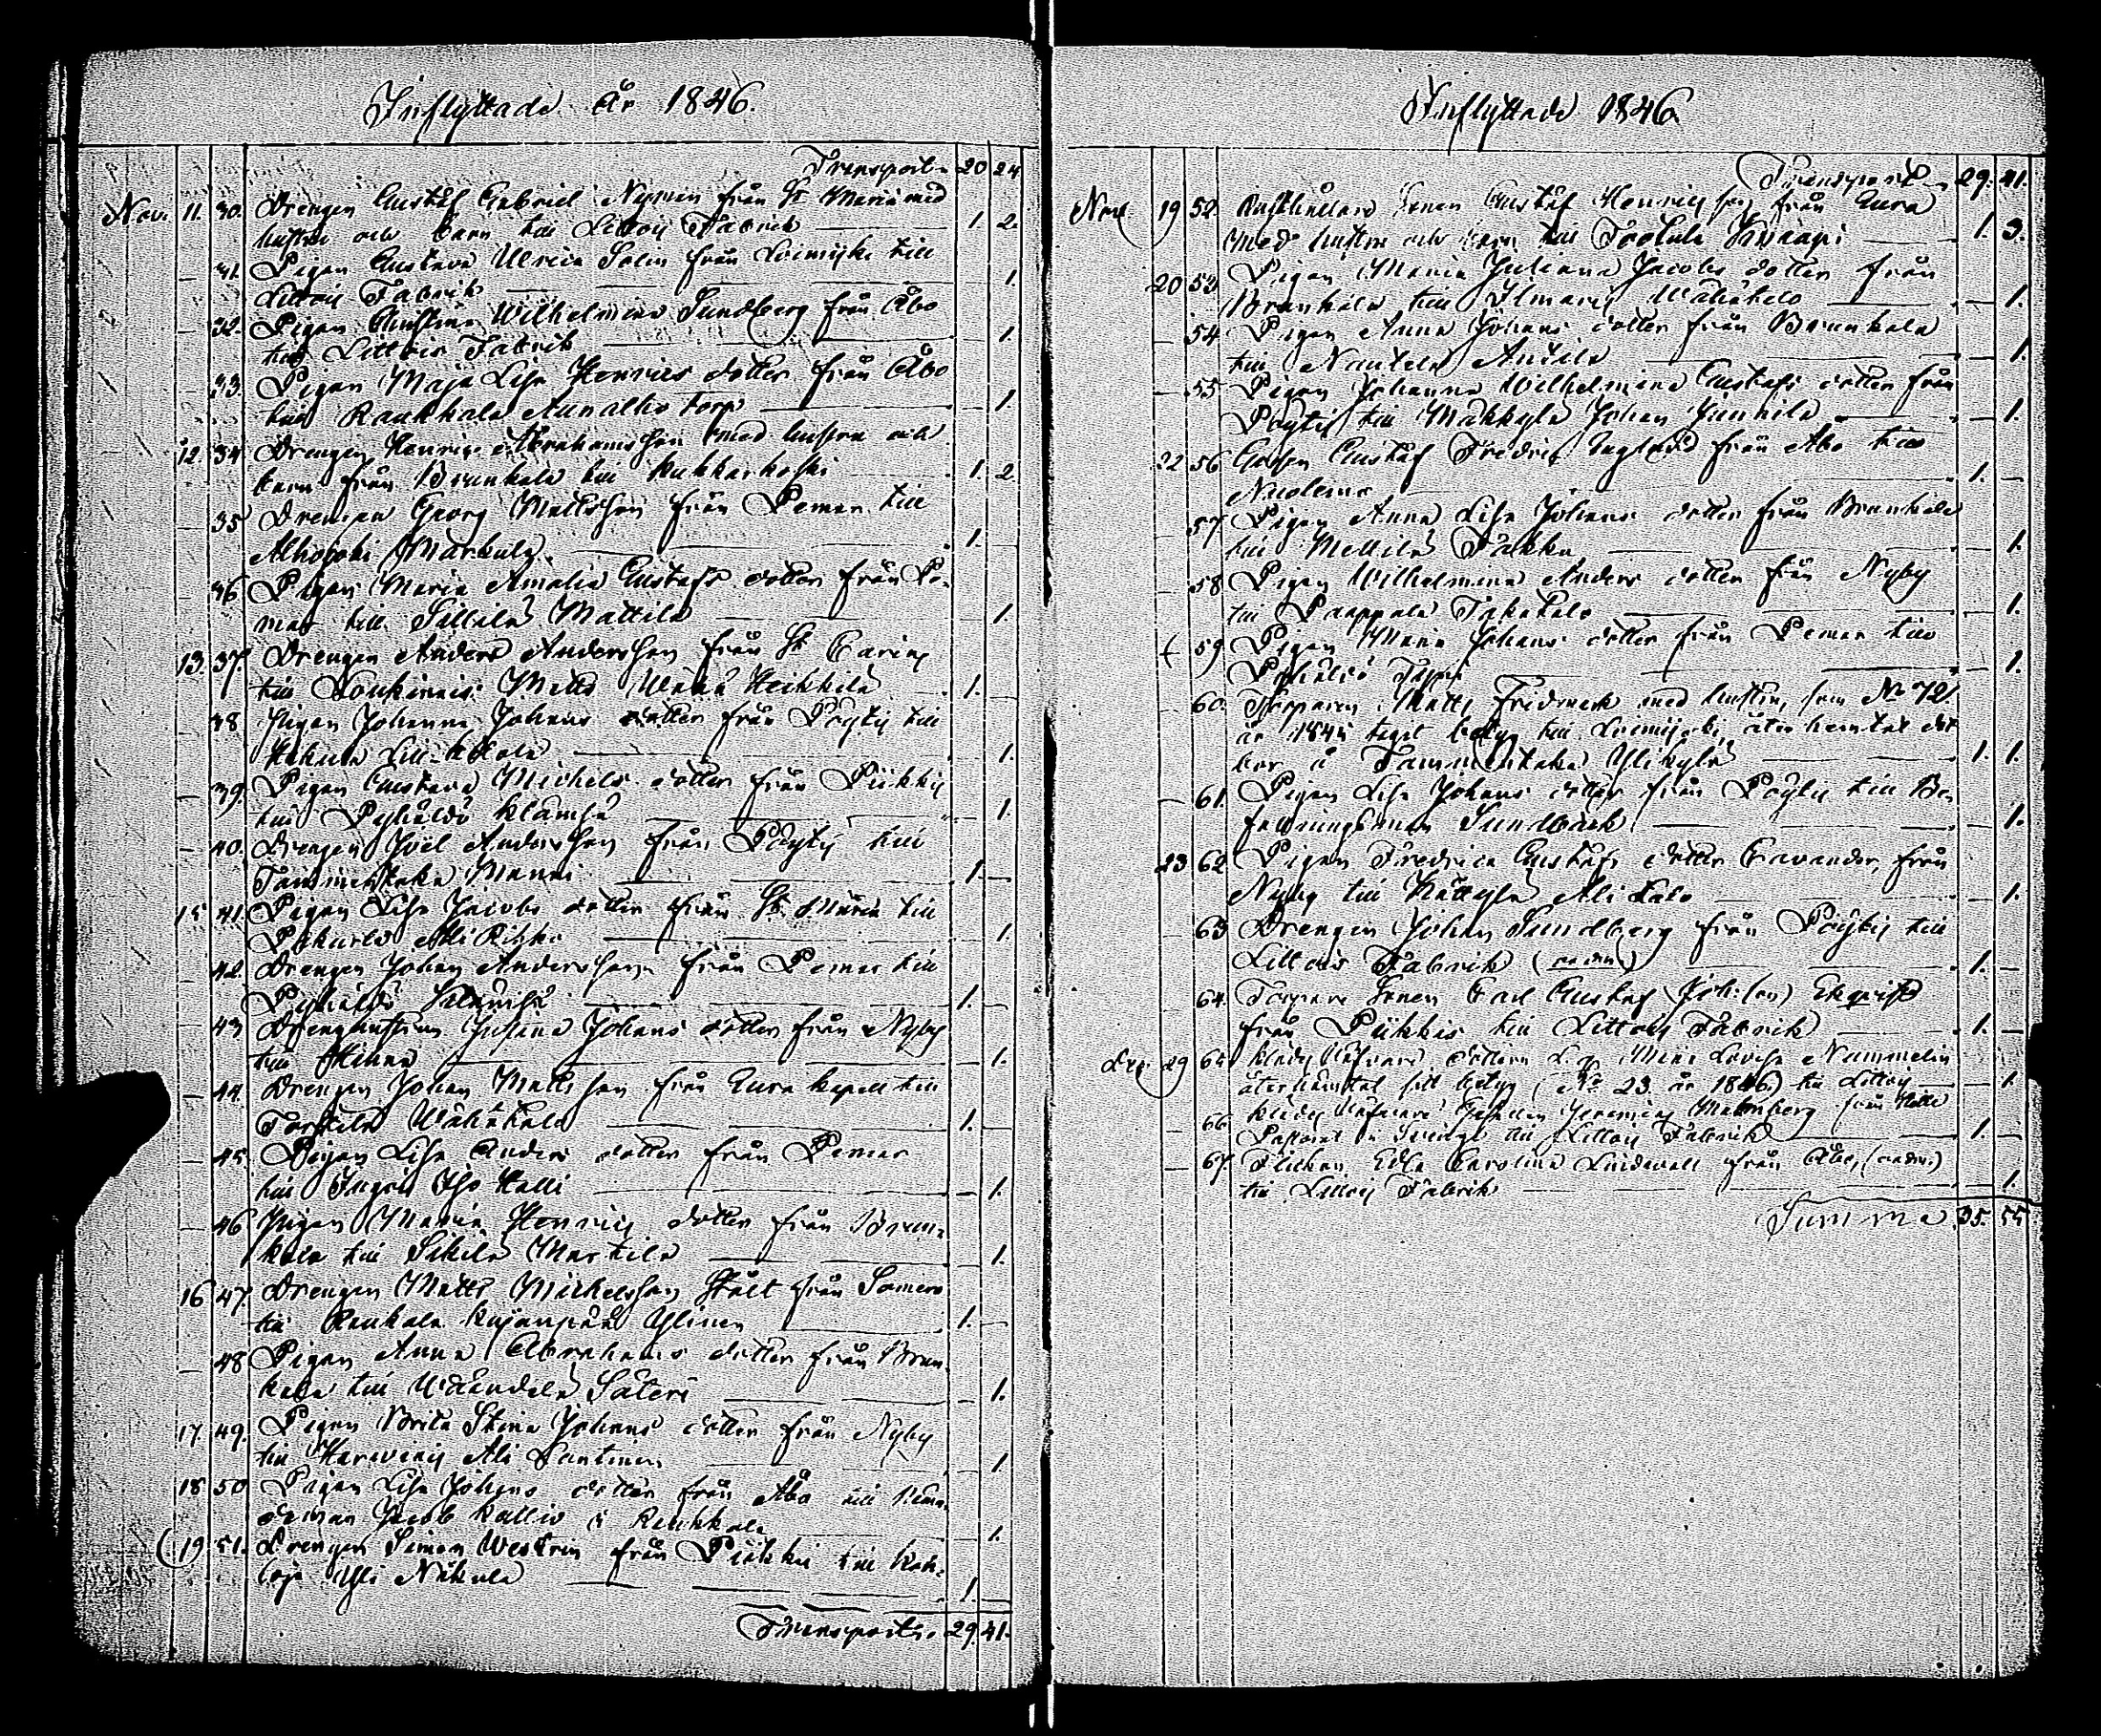 Inflyttade År 1846.
Transport 20 24
Nov. 11. 30. Drengen Gustaf Gabriel Nyman från St Marie med
hustru och barn till Littois Fabrik 1 2.
31. Pigan Gustava Ulrica Solin från Loimijoki till
Littois Fabrik 1.
32. Pigan Christina Wilhelmina Sundberg från Åbo
till Littois Fabrik 1.
33. Pigan Maja Lisa Henrics dotter från Åbo
till Raukkala Aunalho torp 1.
12. 34 Drengen Henric Abrahamsson med hustru och
barn från Brunkala till Kukkarkoski 1. 2.
35 Drengen Georg Mattsson från Pemar till
Alhojoki Markula 1.
36 Pigan Maria Amalia Gustafs dotter från Pe-
mar till Sillilä Mattila 1.
13. 37. Drengen Anders Andersson från St Carins
till Loukinais Matts Wähä Heikkilä 1.
38 Pigan Johanna Johans dotter från Pöytis till
1.
39. Pigan Gustava Michels dotter från Piikkis
till Pyhältö Klämsä 1.
40. Drengen Joel Andersson från Pöytis till
Tammentaka Manni 1.
15 41. Pigan Lisa Jacobs dotter från St Marie till
Pakurla Ali Rihko 1.
42. Drengen Johan Andersson från Pemar till
Pyhältö 1.
43 Drenghustrun Justina Johans dotter från Nyby
till 1.
44. Drengen Johan Mattsson från Aura kapell till
Torkkila Wähätalo 1.
45. Pigan Lisa Anders dotter från Pemar
till Ingois Iso Halli 1.
46 Pigan Maria Henrics dotter från Brun-
kala till Mattila 1.
16 47. Drengen Matts Michelsson Stålt från Somero
till Raukkala Kujanpää Ylinen 1.
48 Pigan Anna Abrahams dotter från Brun-
kala till Wääntelä Säteri 1.
17. 49. Pigan Brita Stina Johans dotter från Nyby
till Harvois Ali 1
18 50 Pigan Lisa Johans dotter från Åbo till
Jacob Kallio i Raukkala 1.
19 51. Drengen Simon Westrin från Piikkis till Kon-
loja Yli Näkula 1.
Transport. 29. 41.
Inflyttade 1846.
Transport 29. 41.
Nov 19 52 Rusthållare Sonen Gustaf Henricsson från Aura
med hustru och barn till Tootula 1. 3.
20 53 Pigan Maria Juliana Jacobs dotter från
Brunkala till Ilmaris Wähätalo 1.
54 Pigan Anna Johans dotter från Brunkala
till Nautelä Antila 1.
55 Pigan Johanna Wilhelmina Gustafs dotter från
Pöytis till Makkyla Johan Junnila 1.
22 56 Gossen Gustaf Fredric Englund från Åbo till
Nuolemo 1.
57 Pigan Anna Lisa Johans dotter från Brunkala
till Mellilä Päkku 1.
58 Pigan Wilhelmina Anders dotter från Nyby
till Paappala Takatalo 1.
59 Pigan Maria Johans dotter från Pemar till
Pyhältö 1.
60. Torparen Matts Fridmark med hustru, som No 72.
år 1845 tagit betyg till Loimijoki, återhemtat det
bor i Tammentaka Ylikylä 1. 1.
61. Pigan Lisa Johans dotter från Pöytis till Be-
fallningsman Sundbäck 1.
23 62 Pigan Fredrica Gustafs dotter Cavander, från
Nyby till Ali talo 1.
63 Drengen Johan Sundberg från Pöytis till
Littois Fabrik 1.
64. Torpare Sonen Carl Gustaf Ekqvist
från Piikkis till Littois Fabrik 1.
Dec 29 65 Klädes Väfvare dottern Mina Lovisa Nummelin
återhämtat sitt betyg (No 23 år 1846) till Littois 1
66 Klädes Väfvare Gesällen Jeremias Malmberg från
Pastorat i Sverige till Littois Fabrik 1.
67 Flickan Edla Carolina Lindevall från Åbo,
till Littois Fabrik 1.
Summa 35. 55